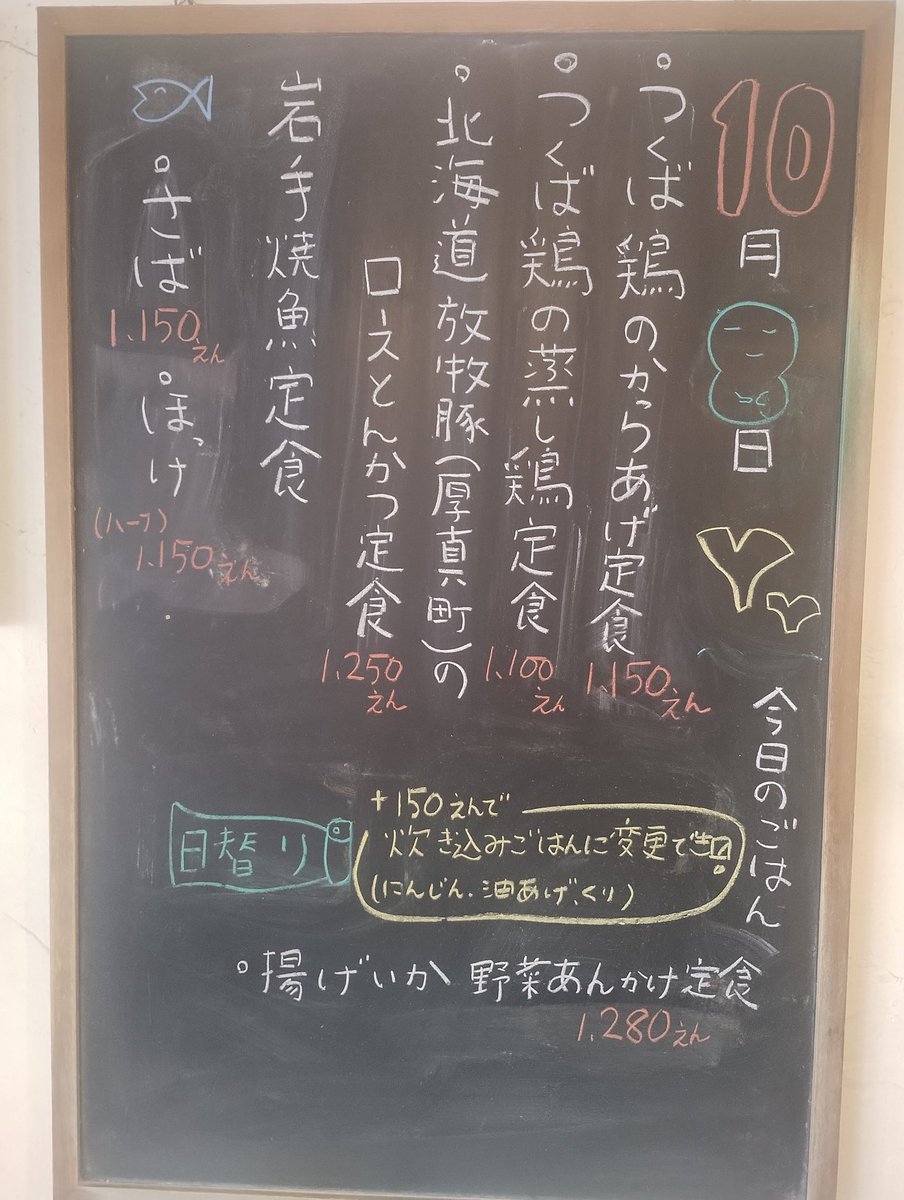 10月 日
今日のごはん
・つくば鶏のからあげ定食
1.150えん
・つくば鶏の蒸し鶏定食
1.100えん
・北海道放牧豚(厚真町)の
ロースとんかつ定食
1.250えん
岩手焼魚定食
・さば
1.150えん
・ほっけ
(ハーフ)
1.150えん
日替り
+150えんで
炊き込みごはんに変更で
(にんじん.油あげ、くり)
・揚げいか 野菜あんかけ定食
1.280えん